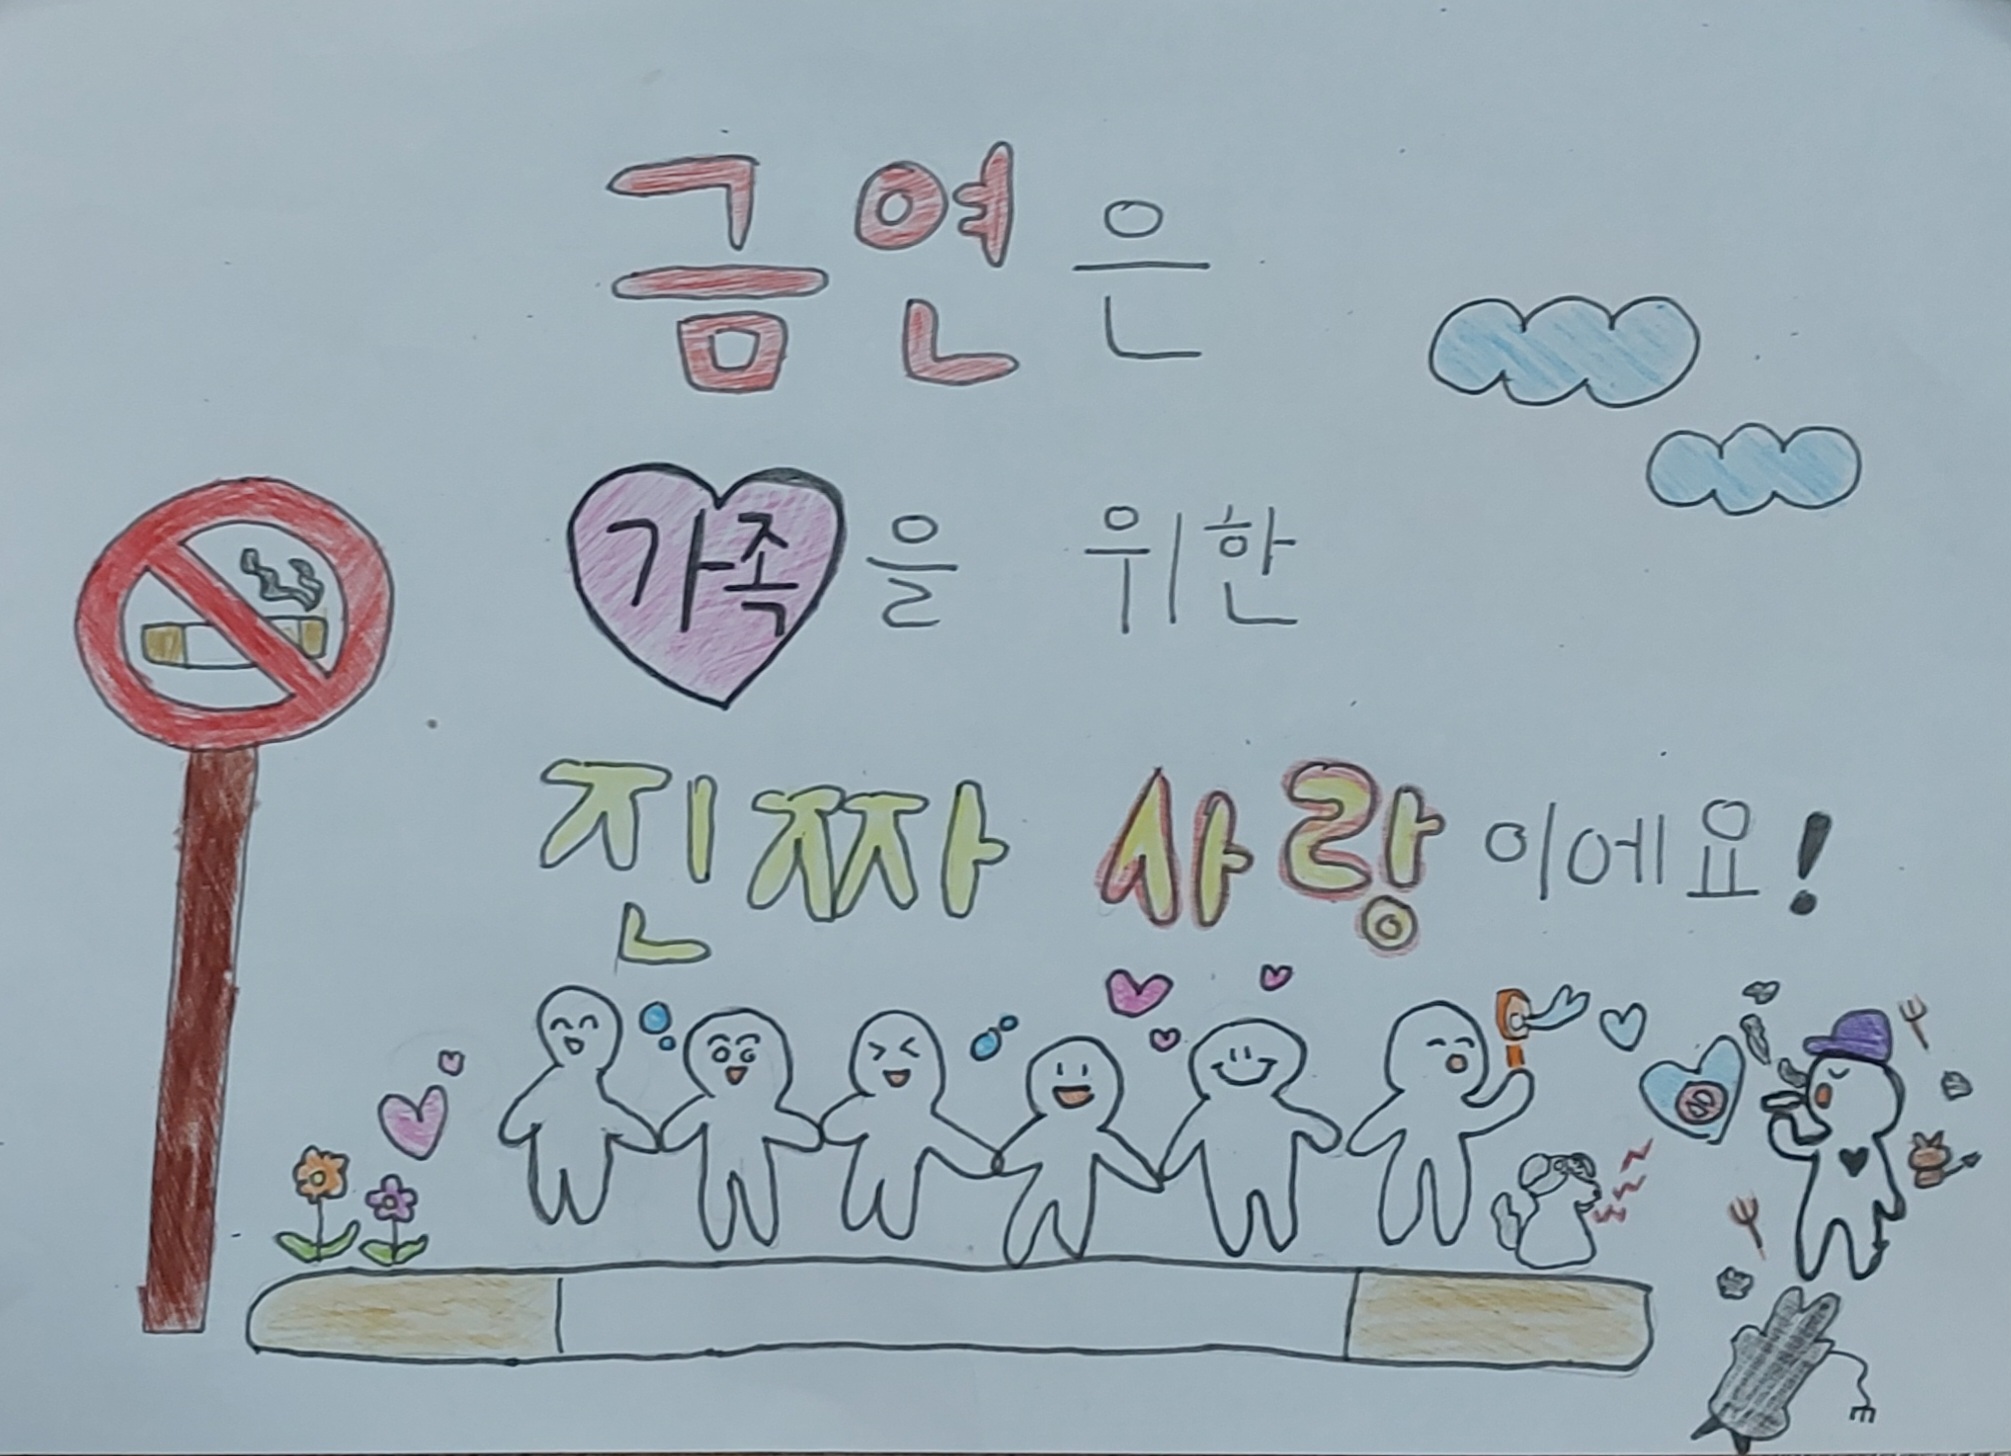 금연은
가족을 위한
진짜 사랑이에요!